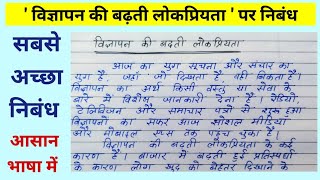 ' विज्ञापन की बढ़ती लोकप्रियता ' पर निबंध
सबसे
अच्छा
निबंध
आसान
भाषा में
विज्ञापन की बढ़ती लोकप्रियता
आज का युग सूचना और संचार का
युग है, जहाँ 'जो दिखता है, वही बिकता है'।
विज्ञापन का अर्थ किसी वस्तु या सेवा के
बारे में विशेष जानकारी देना है। रेडियो,
टेलिविजन और समाचार पत्रों से शुरू हुआ
विज्ञापनों का सफर आज सोशल मीडिया
और मोबाइल एप्स तक पहुंच चुका है।
विज्ञापन की बढ़ती लोकप्रियता के कई
कारण है। बाजार में बढ़ती हुई प्रतिस्पर्धा
के कारण लोग खुद को बेहतर दिखाने के